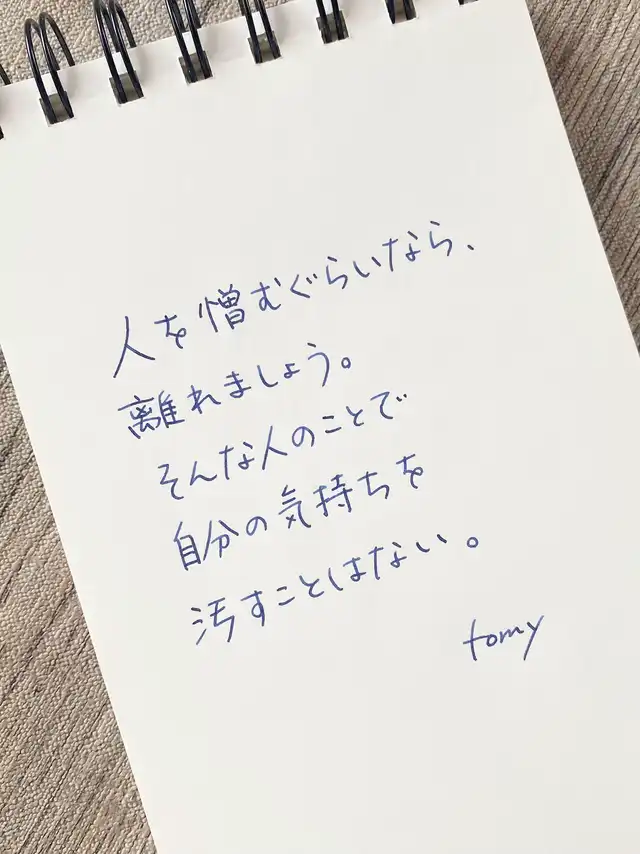 人を憎むぐらいなら、
離れましょう。
そんな人のことで
自分の気持ちを
汚すことはない。
tomy